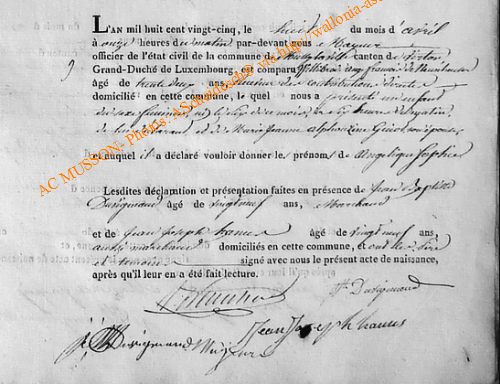 L'AN mil huit cent vingt-cinq, le huit du mois d'avril
à onze heures du matin par-devant nous Mayeur
officier de l'état civil de la commune de canton de Virton
Grand-Duché de Luxembourg est comparu
9
âgé de trente deux ans, des contributions directes
domicilié en cette commune, le quel nous a présenté un enfant
du sexe féminin, né le six du mois, à six heures du matin,
de lui déclarant et de Marie Jeanne Alphonsine son épouse
et auquel il a déclaré vouloir donner les prénoms de Angelique Sophie
Lesdites déclaration et présentation faites en présence de Jean Baptiste
Dusigmand âgé de vingt neuf ans, Marchand
et de Jean Joseph âgé de vingt neuf ans,
aussi marchand domiciliés en cette commune, & ont les père
et témoins signé avec nous le présent acte de naissance,
après qu'il leur en a été fait lecture.
Dusigmand
Jean Joseph
Dusigmand
AC MUSSON- Photos: A Schallenbergh http://wallonia-as